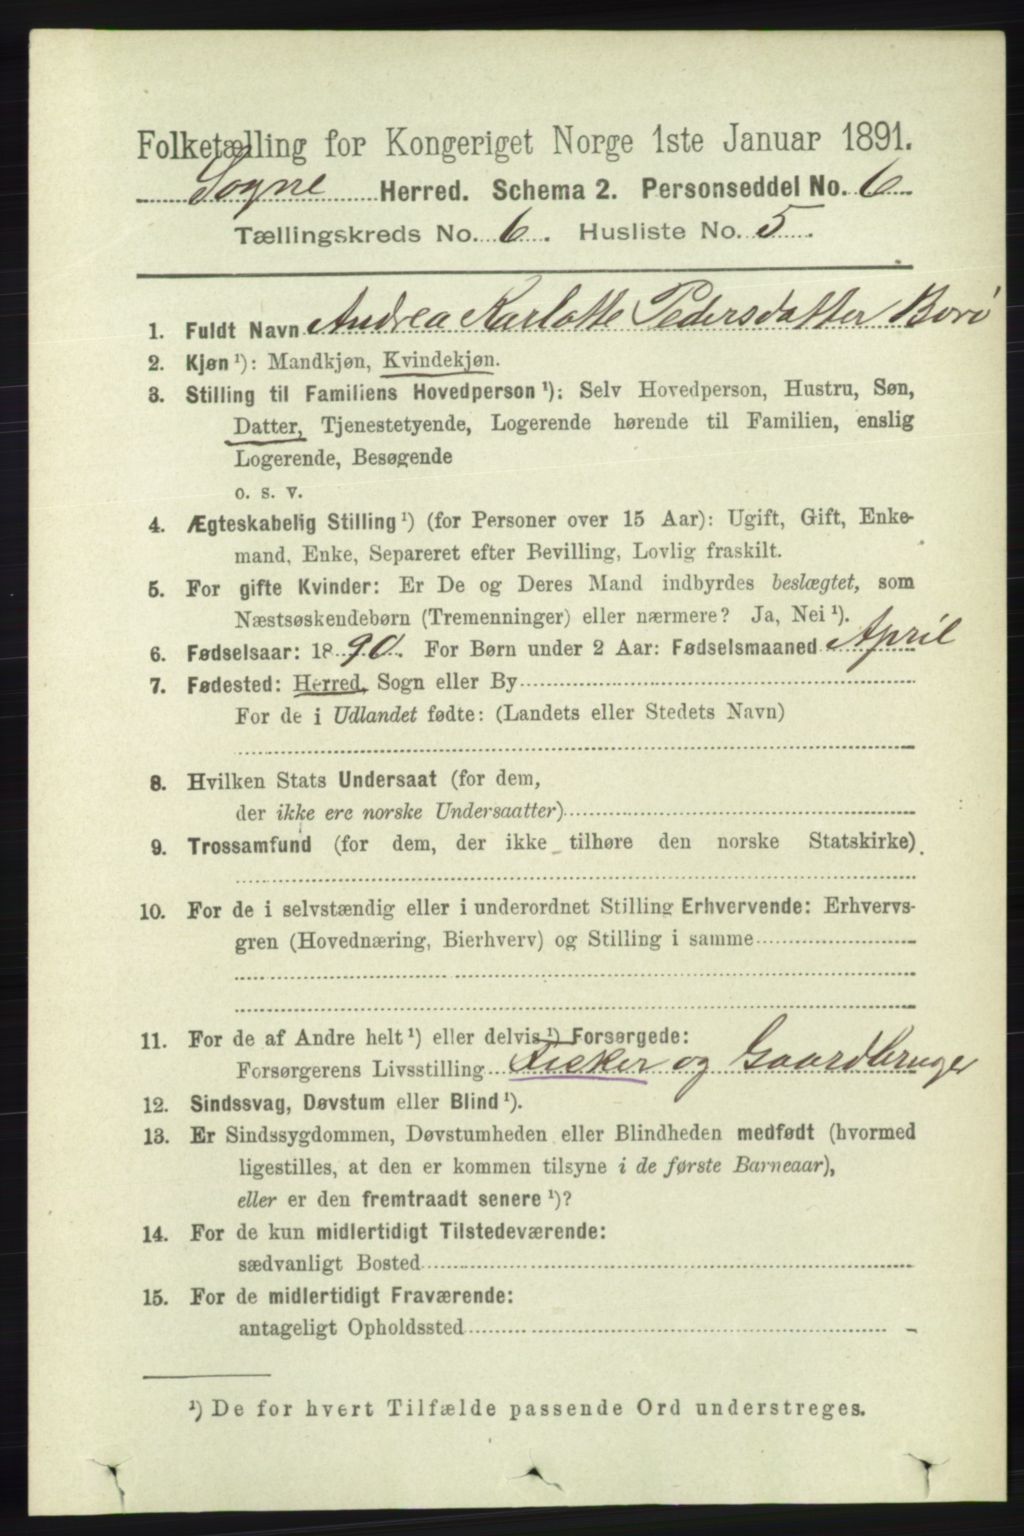 Folketælling for Kongeriget Norge 1ste Januar 1891.
Søgne Herred. Schema 2. Personseddel No. 6
Tællingskreds No. 6. Husliste No. 5.
1. Fuldt Navn Andrea Karlotte Pedersdatter Borø
2. Kjøn ¹): Mandkjøn, Kvindekjøn.
3. Stilling til Familiens Hovedperson ¹): Selv Hovedperson, Hustru, Søn,
Datter, Tjenestetyende, Logerende hørende til Familien, enslig
Logerende, Besøgende
o. s. v.
4. Ægteskabelig Stilling ¹) (for Personer over 15 Aar): Ugift, Gift, Enke-
mand, Enke, Separeret efter Bevilling, Lovlig fraskilt.
5. For gifte Kvinder: Er De og Deres Mand indbyrdes beslægtet, som
Næstsøskendebørn (Tremenninger) eller nærmere? Ja, Nei ¹).
6. Fødselsaar: 1890. For Børn under 2 Aar: Fødselsmaaned April
7. Fødested: Herred, Sogn eller By
For de i Udlandet fødte: (Landets eller Stedets Navn)
8. Hvilken Stats Undersaat (for dem,
der ikke ere norske Undersaatter)
9. Trossamfund (for dem, der ikke tilhøre den norske Statskirke)
10. For de i selvstændig eller i underordnet Stilling Erhvervende: Erhvervs-
gren (Hovednæring, Bierhverv) og Stilling i samme
11. For de af Andre helt ¹) eller delvis ¹) Forsørgede:
Forsørgerens Livsstilling Fisker og Gaardbruger
12. Sindssvag, Døvstum eller Blind ¹).
13. Er Sindssygdommen, Døvstumheden eller Blindheden medfødt (hvormed
ligestilles, at den er kommen tilsyne i de første Barneaar),
eller er den fremtraadt senere ¹)?
14. For de kun midlertidigt Tilstedeværende:
sædvanligt Bosted
15. For de midlertidigt Fraværende:
antageligt Opholdssted
¹) De for hvert Tilfælde passende Ord understreges.